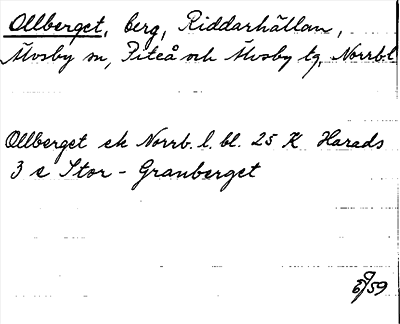 Ollberget, berg, Riddarhällan,
Älvsby sn, Piteå och Älvsby tg, Norrb.l
Ollberget ek Norrb.l. bl. 25 K Harads
3 s Stor-Granberget
59